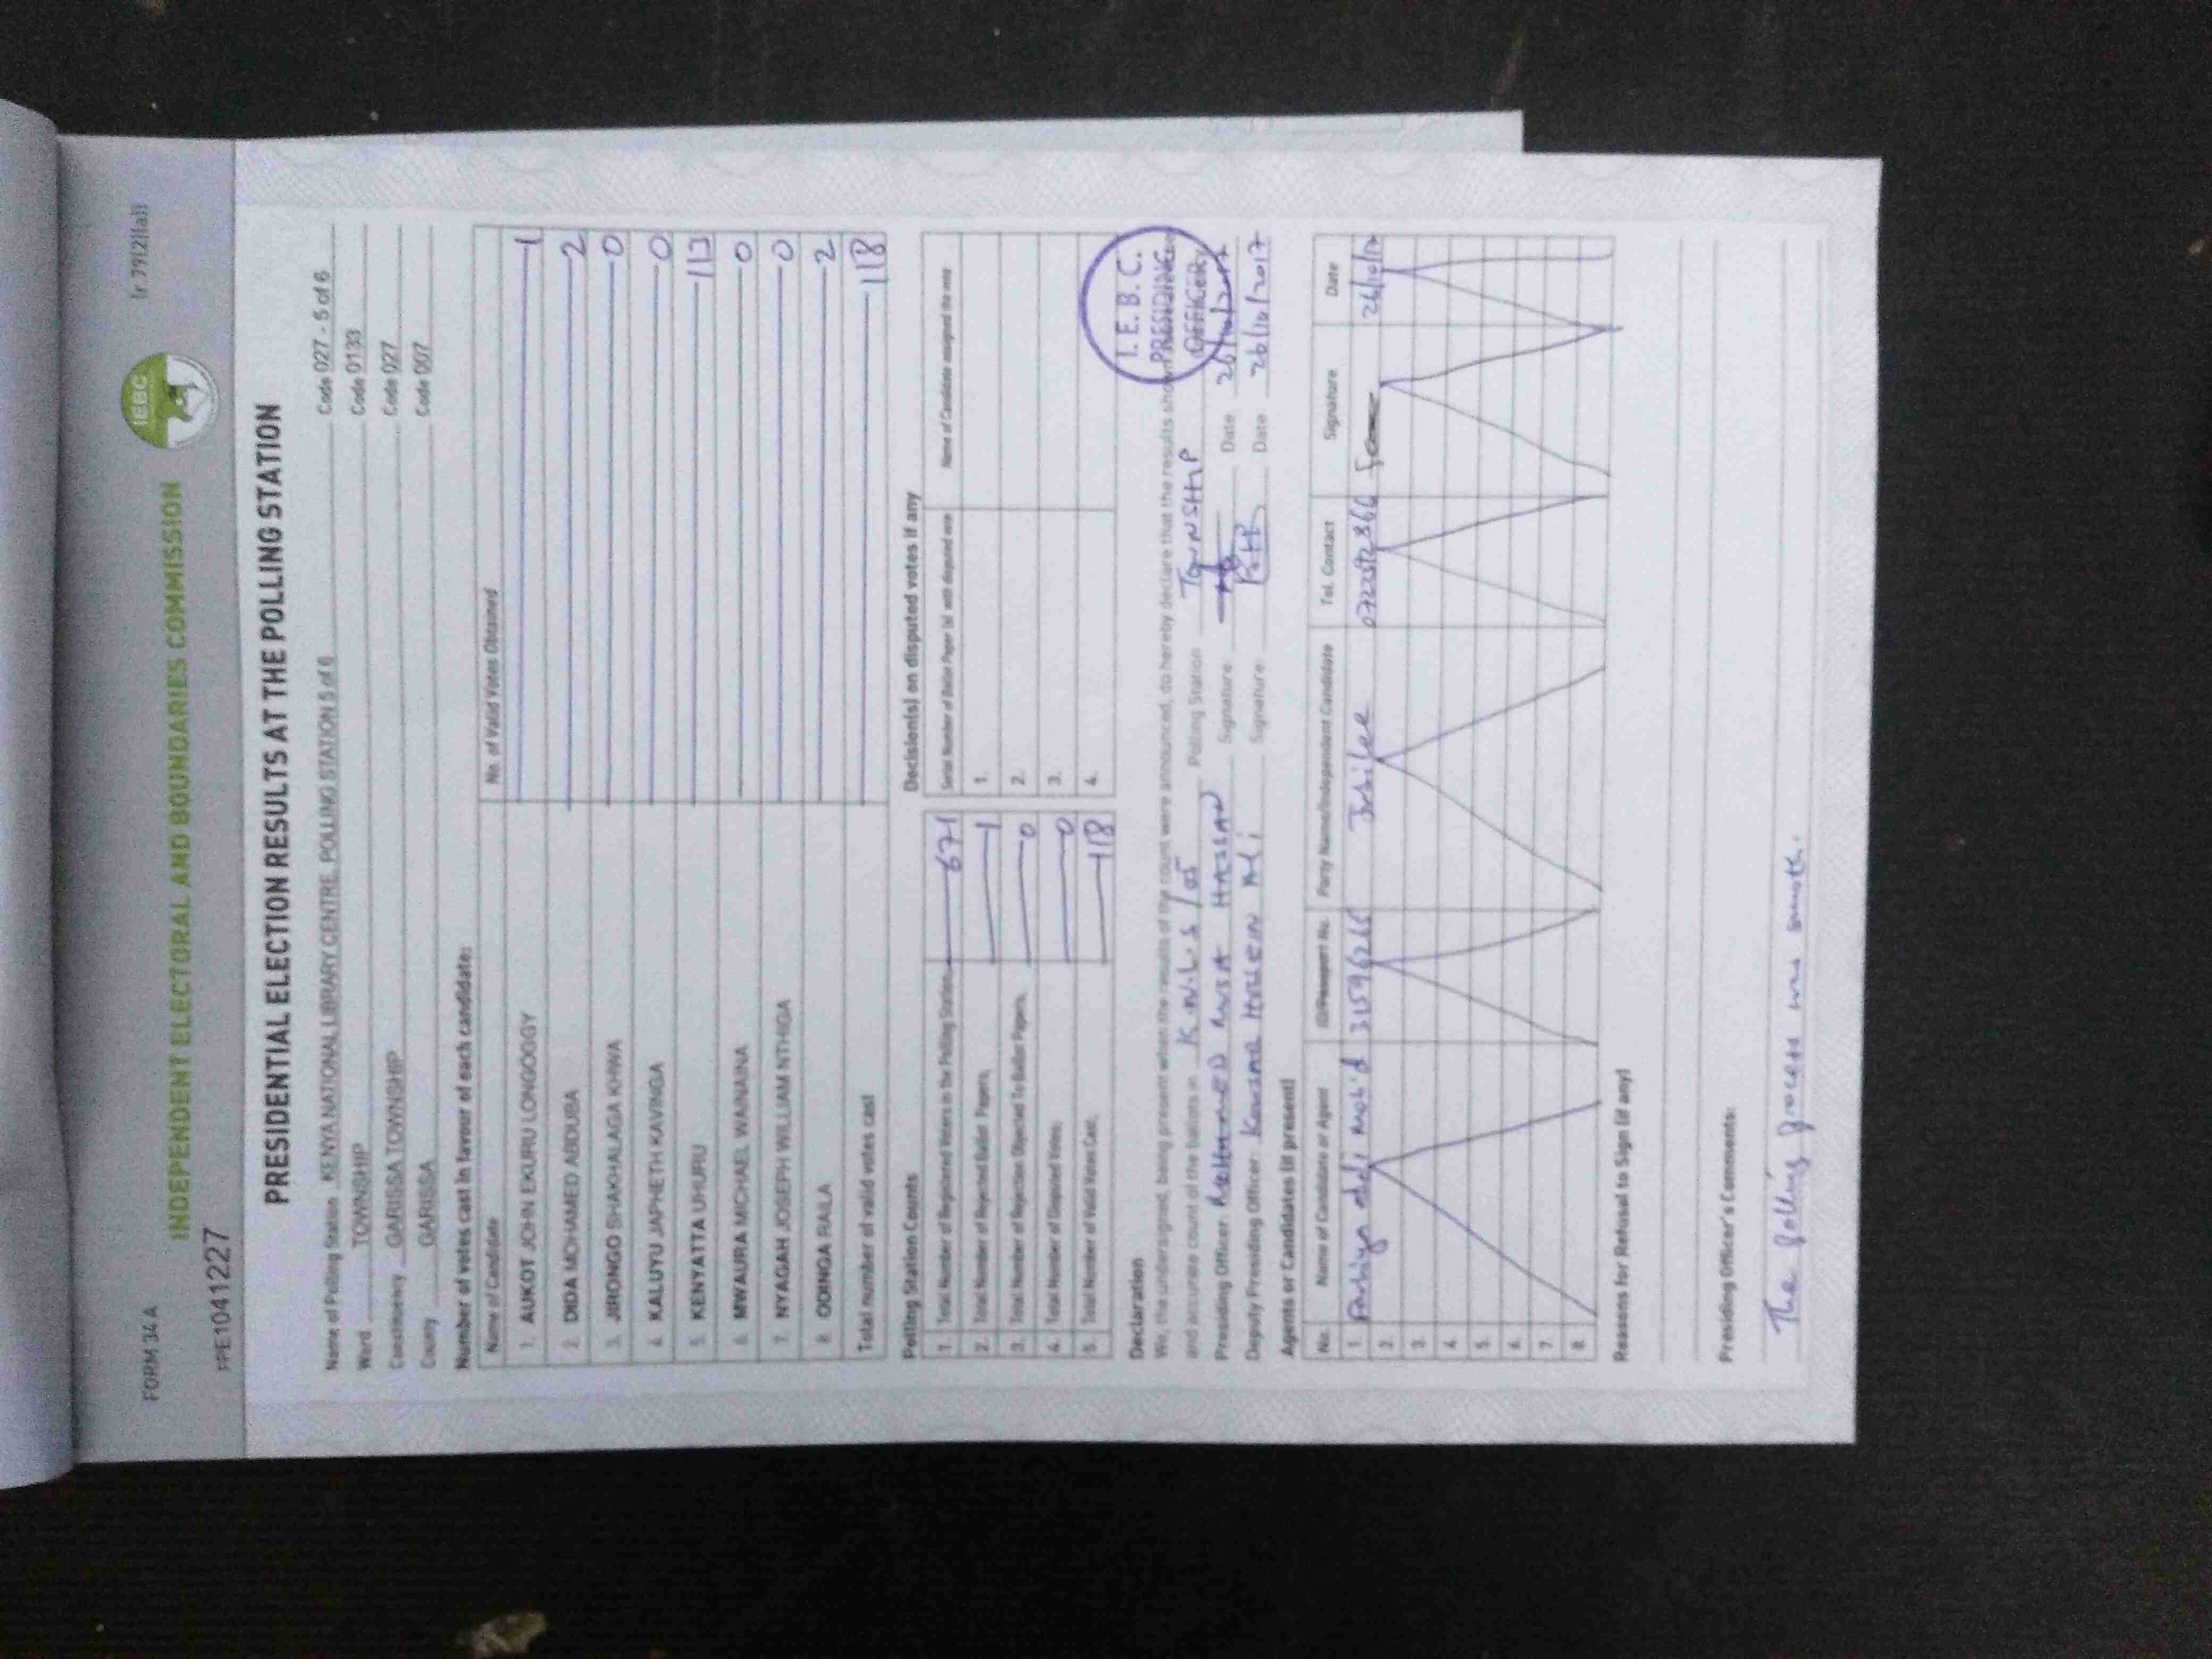 FORM 34 A
(r.79(2)(a))
IEBC
INDEPENDENT ELECTORAL AND BOUNDARIES COMMISSION
PE1041227
PRESIDENTIAL ELECTION RESULTS AT THE POLLING STATION
Name of Polling Station KENYA NATIONAL LIBRARY CENTRE, POLLING STATION 5 of 6 Code 027 - 5 of 6
Ward TOWNSHIP Code 0133
Constituency GARISSA TOWNSHIP Code 027
County GARISSA Code 007
Number of votes cast in favour of each candidate:
Name of Candidate No. of Valid Votes Obtained
1. AUKOT JOHN EKURU LONGOGGY 1
2. DIDA MOHAMED ABDUBA 2
3. JIRONGO SHAKHALAGA KHWA 0
4. KALUYU JAPHETH KAVINGA 0
5. KENYATTA UHURU 113
6. MWAURA MICHAEL WAINAINA 0
7. NYAGAH JOSEPH WILLIAM NTHIGA 0
8. ODINGA RAILA 2
Total number of valid votes cast 118
Polling Station Counts
1. Total Number of Registered Voters in the Polling Station 671
2. Total Number of Rejected Ballot Papers 1
3. Total Number of Rejection Objected To Ballot Papers 0
4. Total Number of Disputed Votes 0
5. Total Number of Valid Votes Cast 118
Decision(s) on disputed votes if any
Serial Number of Ballot Paper (s) with disputed vote Name of Candidate assigned the vote
1.
2.
3.
4.
I.E.B.C.
PRESIDING
OFFICER
Declaration
We, the undersigned, being present when the results of the count were announced, do hereby declare that the results shown
and accurate count of the ballots in K.N.L.S / 05 Polling Station TOWNSHIP
Presiding Officer: HASSAN Signature: Date 26/10/2017
Deputy Presiding Officer: Signature: Date 26/10/2017
Agents or Candidates (if present)
No. Name of Candidate or Agent ID/Passport No. Party Name/Independent Candidate Tel. Contact Signature Date
1. Jubilee 26/10/17
2.
3.
4.
5.
6.
7.
8.
Reasons for Refusal to Sign (if any)
Presiding Officer's Comments:
The polling process was smooth.